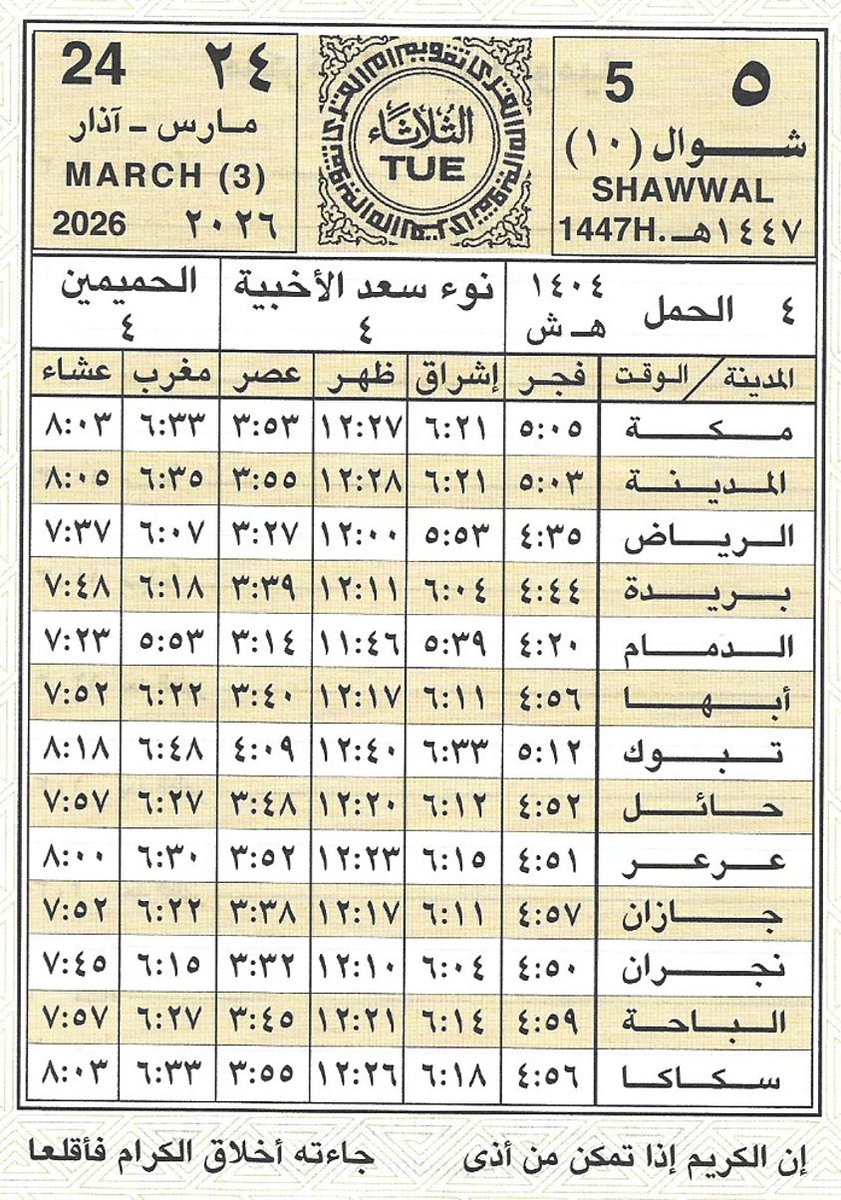 ٥ 5
شـــوال (١٠)
SHAWWAL
١٤٤٧هـ. 1447H
تقويم أم القرى
الثلاثاء
TUE
24 ٢٤
مـارس - آذار
MARCH (3)
2026 ٢٠٢٦
٤ الحمل ١٤٠٤ هـ ش
نوء سعد الأخبية ٤
الحميمين ٤
المدينة / الوقت فجر إشراق ظهر عصر مغرب عشاء
مـكـة ٥:٠٥ ٦:٢١ ١٢:٢٧ ٣:٥٣ ٦:٣٣ ٨:٠٣
المـديـنـة ٥:٠٣ ٦:٢١ ١٢:٢٨ ٣:٥٥ ٦:٣٥ ٨:٠٥
الـريـاض ٤:٣٥ ٥:٥٣ ١٢:٠٠ ٣:٢٧ ٦:٠٧ ٧:٣٧
بـريـدة ٤:٤٤ ٦:٠٤ ١٢:١١ ٣:٣٩ ٦:١٨ ٧:٤٨
الـدمـام ٤:٢٠ ٥:٣٩ ١١:٤٦ ٣:١٤ ٥:٥٣ ٧:٢٣
أبـهـا ٤:٥٦ ٦:١١ ١٢:١٧ ٣:٤٠ ٦:٢٢ ٧:٥٢
تـبـوك ٥:١٢ ٦:٣٣ ١٢:٤٠ ٤:٠٩ ٦:٤٨ ٨:١٨
حـائـل ٤:٥٢ ٦:١٢ ١٢:٢٠ ٣:٤٨ ٦:٢٧ ٧:٥٧
عـرعـر ٤:٥١ ٦:١٥ ١٢:٢٣ ٣:٥٢ ٦:٣٠ ٨:٠٠
جـازان ٤:٥٧ ٦:١١ ١٢:١٧ ٣:٣٨ ٦:٢٢ ٧:٥٢
نجـران ٤:٥٠ ٦:٠٤ ١٢:١٠ ٣:٣٢ ٦:١٥ ٧:٤٥
الـبـاحـة ٤:٥٩ ٦:١٤ ١٢:٢١ ٣:٤٥ ٦:٢٧ ٧:٥٧
سـكـاكـا ٤:٥٦ ٦:١٨ ١٢:٢٦ ٣:٥٥ ٦:٣٣ ٨:٠٣
إن الكريم إذا تمكن من أذى جاءته أخلاق الكرام فأقلعا